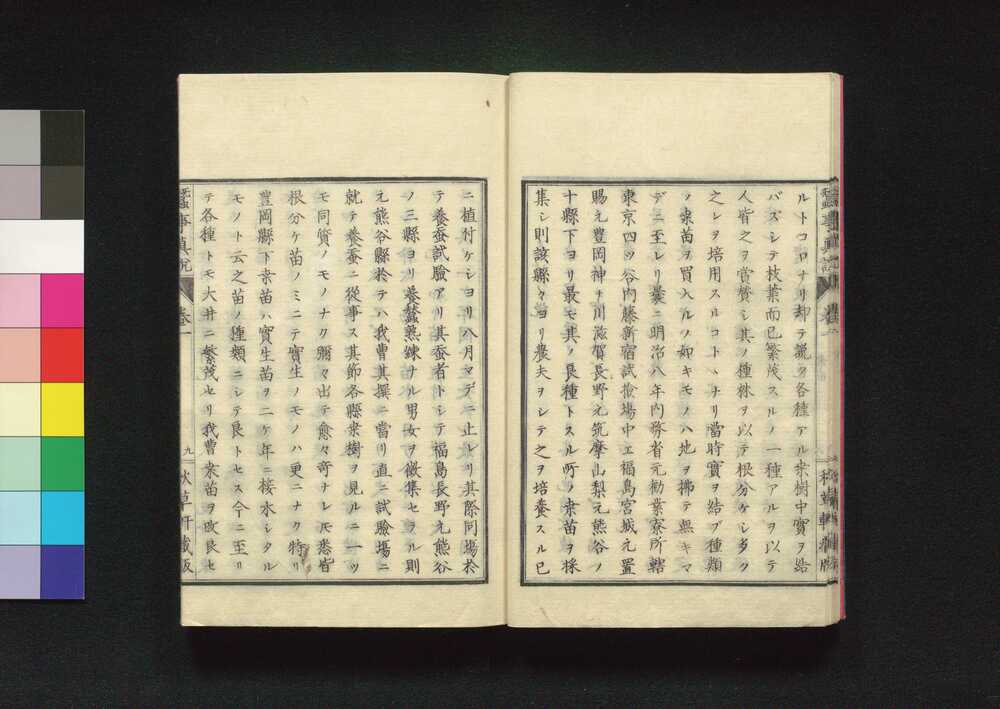 ルトコロナリ却テ說ク各種アル桒樹中實ヲ結
バズシテ枝葉而已繁茂スルノ一種アルヲ以テ
人皆之ヲ賞贊シ其ノ種林ヲ以テ根分ケシ多ク
之レヲ培用スルコトヽナリ當時實ヲ結ブ種類
ノ桒苗ヲ買入ルヽ如キモノハ地ヲ拂テ無キマ
デニ至レリ曩ニ明治八年內務省元勸業寮所轄
東京四ツ谷內藤新宿試撿場中エ福島宮城元置
賜元豊岡神奈川滋賀長野元筑摩山梨元熊谷ノ
十縣下ヨリ最モ其ノ良種トスル所ノ桒苗ヲ採
集シ則該縣々ヨリ農夫ヲシテ之ヲ培養スル已
ニ植付ケシヨリ八月マデニ止レリ其際同塲於
テ養蚕試驗アリ其蚕者トシテ福島長野元熊谷
ノ三縣ヨリ養蠶熟鍊ナル男女ヲ徴集セラル則
元熊谷縣於テハ我曹其撰ニ當リ直ニ試驗塲ニ
就テ養蚕ニ從事ス其節各縣桒樹ヲ見ルニ一ツ
モ同質ノモノナク彌々出テ愈々奇ナレ𪜈悉皆
根分ケ苗ノミニテ實生ノモノハ更ニナク特リ
豊岡縣下桒苗ハ實生苗ヲ二ケ年ニ接木シタル
モノト云之苗ノ種類ニシテ良トセス今ニ至リ
テ各種トモ大井ニ繁茂セリ我曹桒苗ヲ改良セ
蠶事眞說 卷一 九 秋草軒藏版